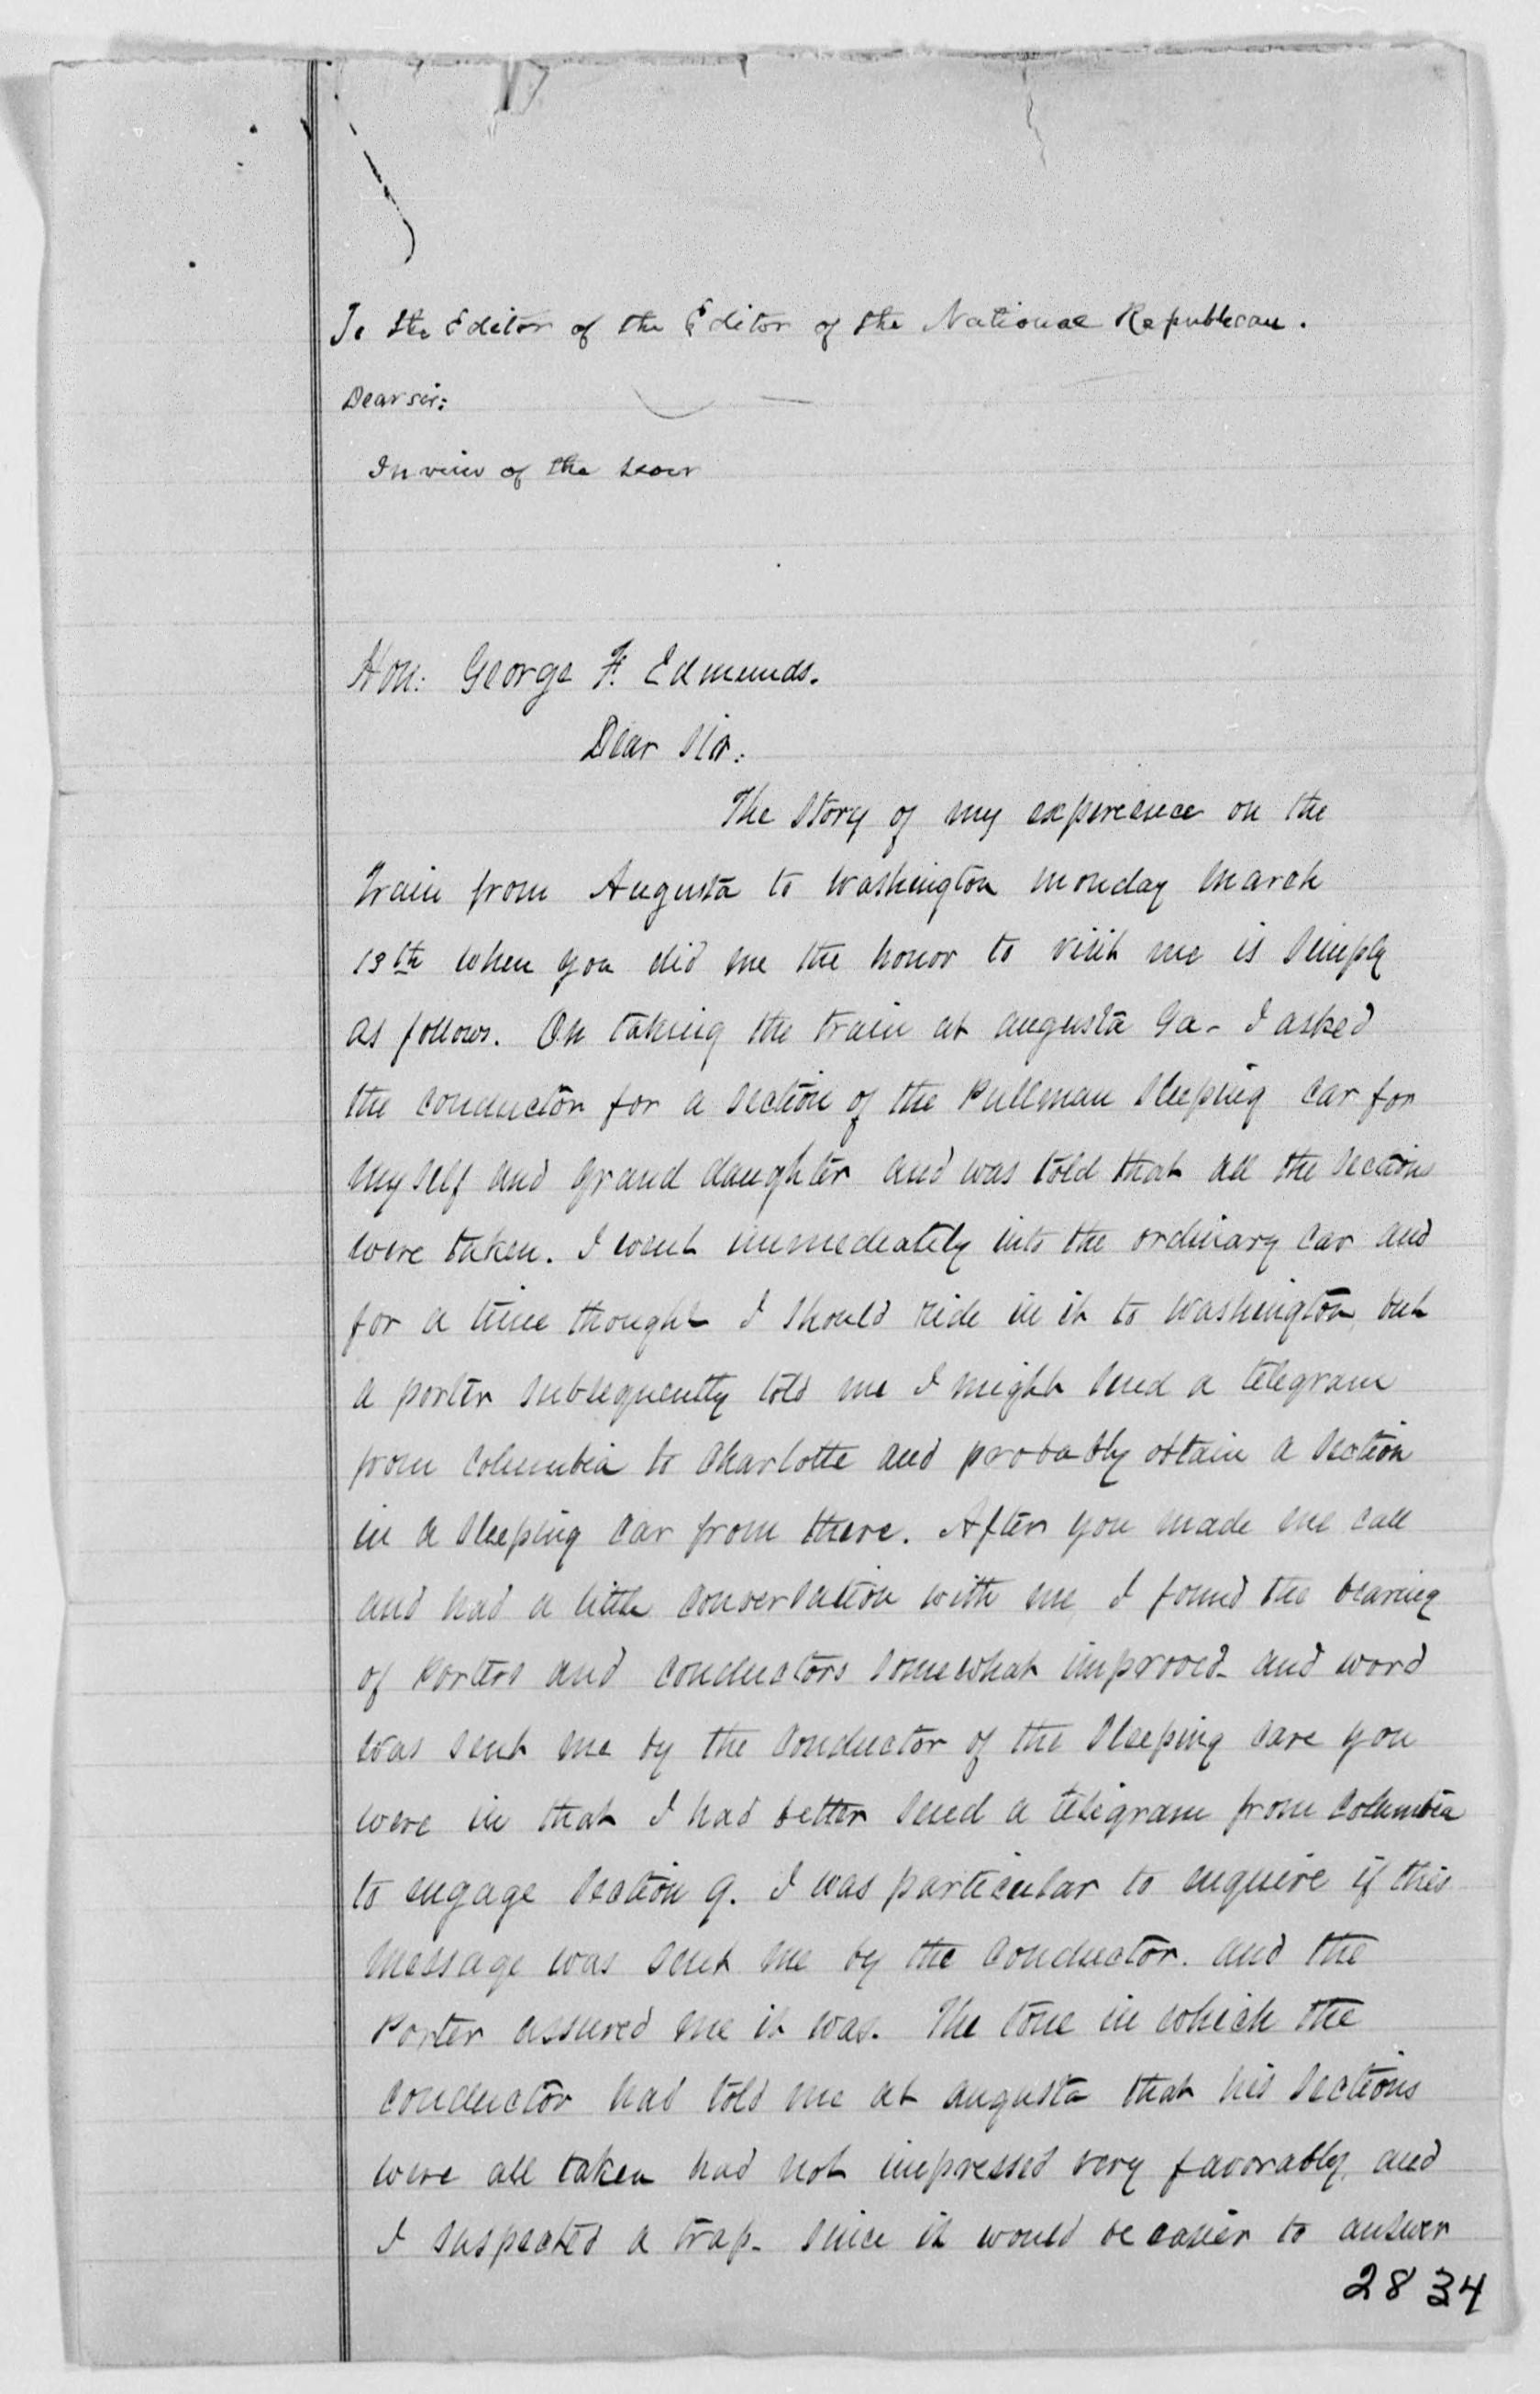 To the Editor of the Editor of the National Republican.
Dear sir:
In view of the
Hon: George F. Edmunds.
Dear Sir:
The Story of my experience on the
train from Augusta to Washington monday march
13th when you did me the honor to visit me is simply
as follows. On taking the train at augusta Ga - I asked
the conductor for a section of the Pullman Sleeping car for
myself and grand daughter and was told that all the sections
were taken. I went immediately into the ordinary car and
for a time thought I should ride in it to Washington, but
a porter subsequently told me I might send a telegram
from Columbia to Charlotte and probably obtain a section
in a Sleeping car from there. After you made me call
and had a little conversation with me, I found the bearing
of Porters and conductors somewhat improved and word
was sent me by the conductor of the Sleeping care you
were in that I had better send a telegram from Columbia
to engage Section 9. I was particular to enquire if this
message was sent me by the conductor. and the
Porter assured me it was. The tone in which the
conductor had told me at augusta that his sections
were all taken had not impressed very favorably, and
I suspected a trap - since it would be easier to answer
2834